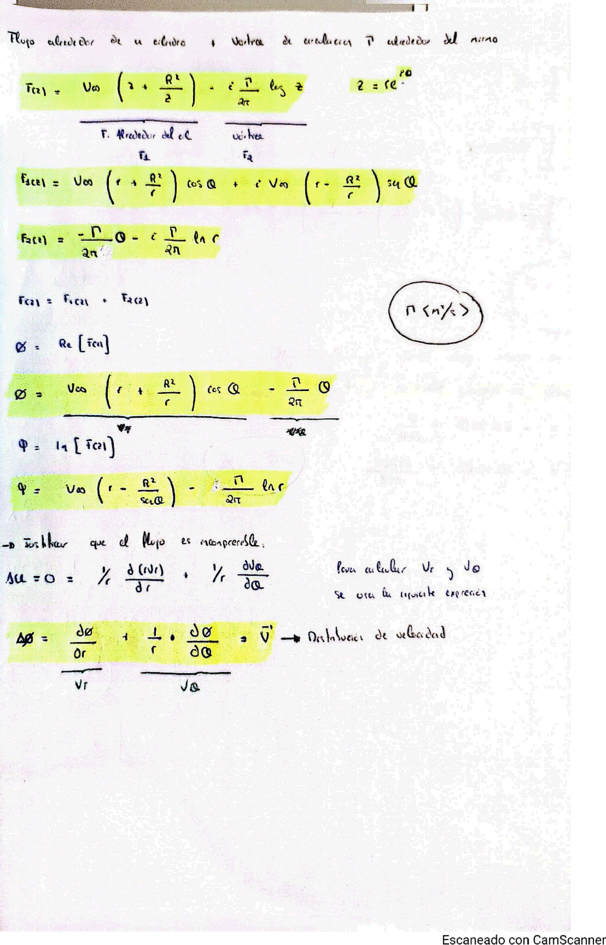 Flujo alrededor de un cilindro + vórtice de circulación Γ alrededor del mismo
F(z) = V∞ (z + R²/z) - i Γ/2π log z    z = re^iθ
F. Alrededor del cil    vórtice
F1    F2
F1(z) = V∞ (r + R²/r) cos θ + i V∞ (r - R²/r) sen θ
F2(z) = -Γ/2π θ - i Γ/2π ln r
F(z) = F1(z) + F2(z)
Γ <m²/s>
Ø = Re [F(z)]
Ø = V∞ (r + R²/r) cos θ - Γ/2π θ
φ = Im [F(z)]
φ = V∞ (r - R²/senθ) - Γ/2π ln r
→ Justificar que el flujo es incompresible.
Δu = 0 = 1/r d(rVr)/dr + 1/r dVθ/dθ
Para calcular Vr y Vθ
se usa la siguiente expresión
ΔØ = dØ/dr + 1/r · dØ/dθ = V → Distribución de velocidad
Vr    Vθ
Escaneado con CamScanner